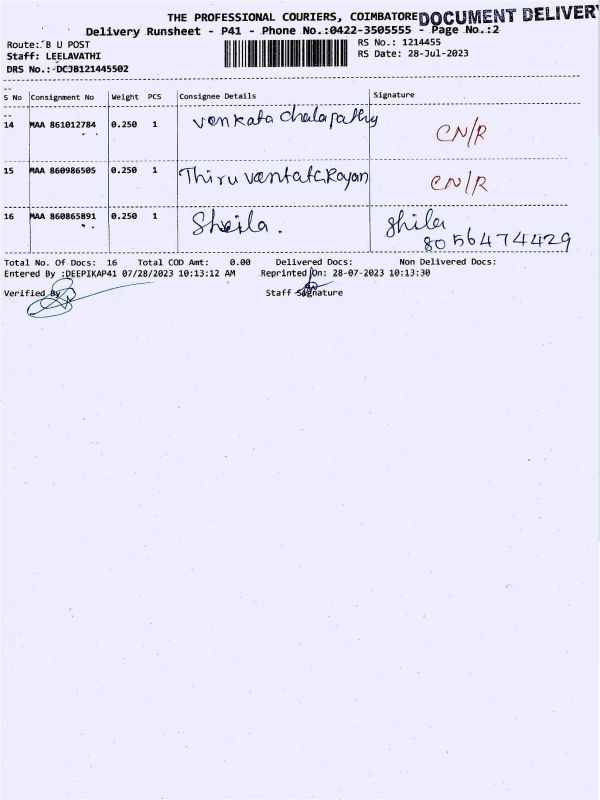 THE PROFESSIONAL COURIERS, COIMBATORE DOCUMENT DELIVERY
Delivery Runsheet - P41 - Phone No.:0422-3505555 - Page No.:2
Route: B U POST
RS No.: 1214455
Staff: LEELAVATHI
RS Date: 28-Jul-2023
DRS No.: DCJB121445502
S No Consignment No Weight PCS Consignee Details Signature
14 MAA 861012784 0.250 1 Venkata chalapathy CN/R
15 MAA 860986505 0.250 1 CN/R
16 MAA 860865891 0.250 1 Sheila. Shila
8056474429
Total No. Of Docs: 16 Total COD Amt: 0.00 Delivered Docs: Non Delivered Docs:
Entered By :DEEPIKAP41 07/28/2023 10:13:12 AM Reprinted On: 28-07-2023 10:13:30
Verified By Staff Signature